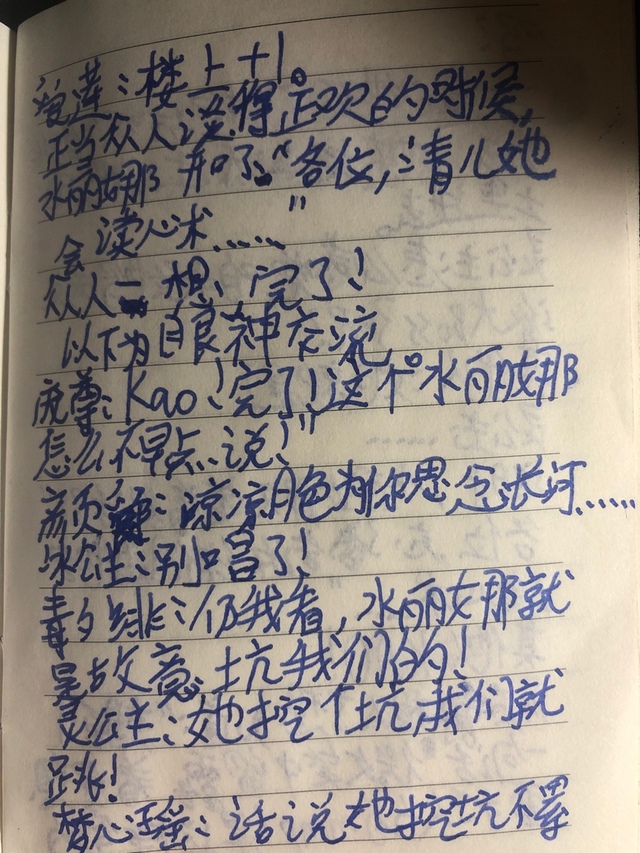 莲：楼上+1。
正当众人谈得正欢的时候，
水丽娜 开口了“各位，清儿她
会读心术……”
众人一想，完了！
以下为眼神交流
庞尊：Kao！完了！这个“水丽娜
怎么不早点说！”
颜爵：凉凉月色为你思念长河……
冰公主：别唱了！
毒夕绯：依我看，水丽娜就
是故意坑我们的！
灵公主：她挖个坑，我们就
跳！
梦心瑶：话说她挖坑不累